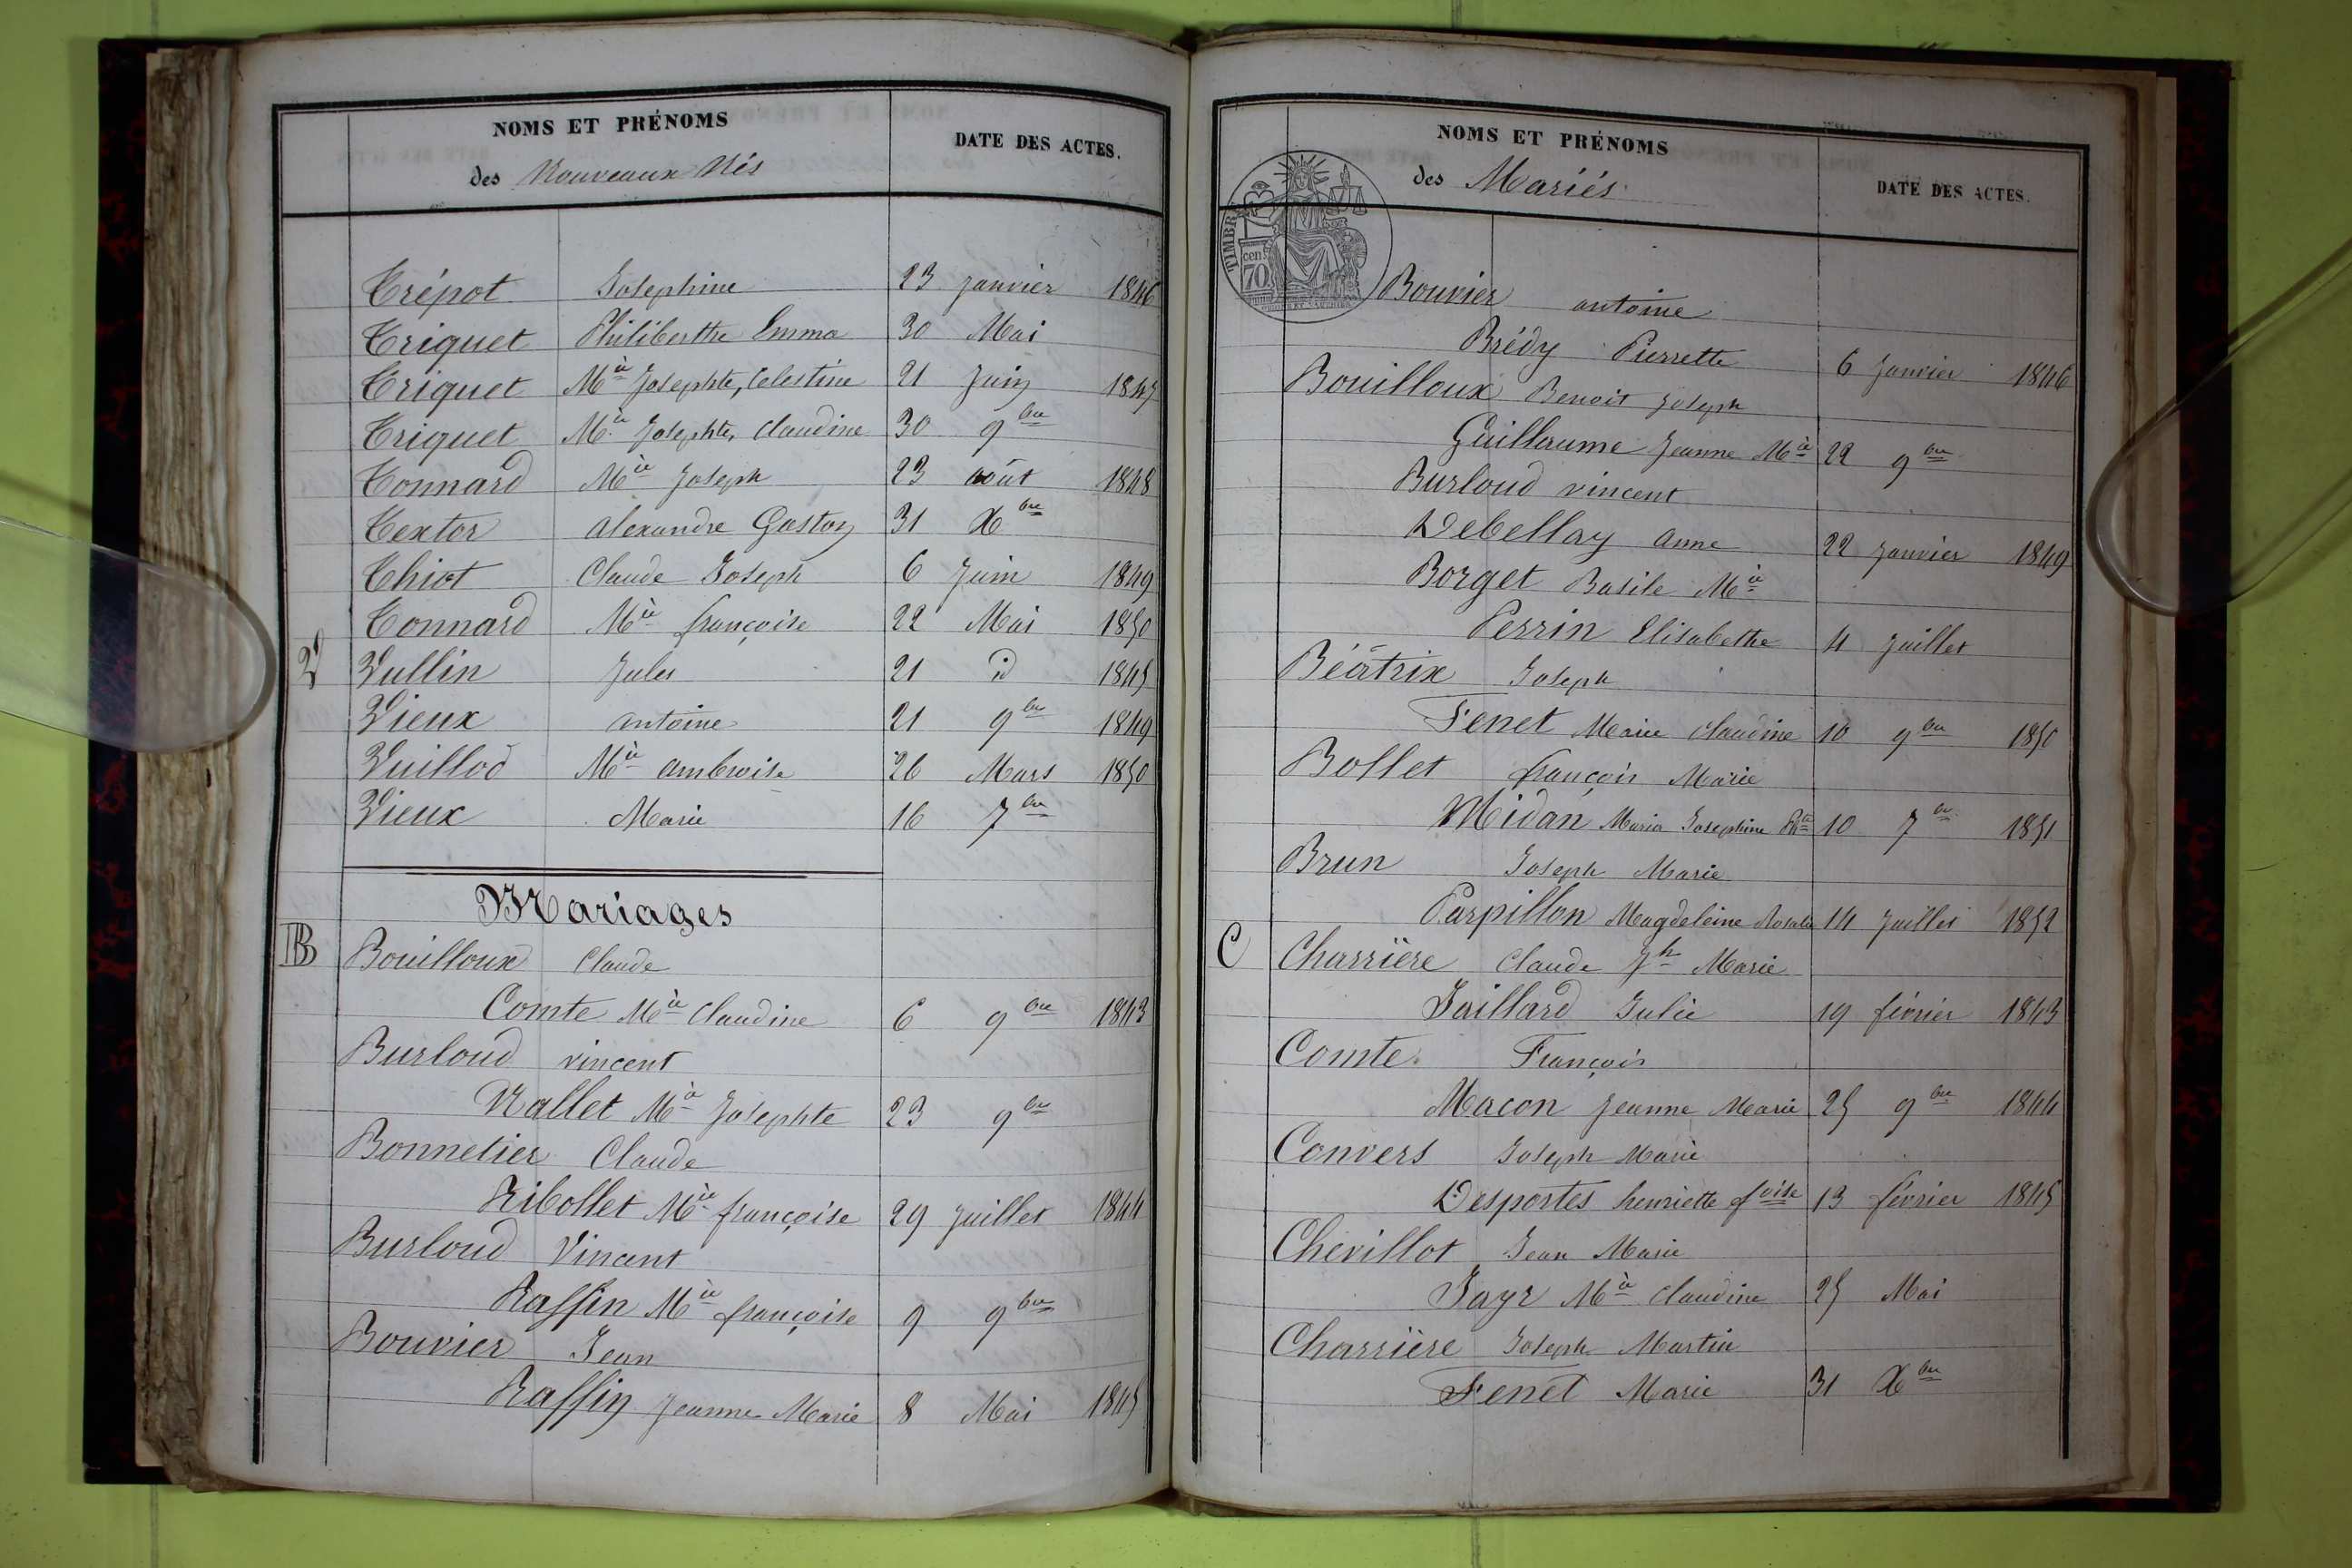 NOMS ET PRÉNOMS
des Nouveaux Nés
DATE DES ACTES.
Trépot Joséphine 23 janvier 1846
Triquet Philiberthe Emma 30 Mai
Triquet Mie Josephte, Celestine 21 Juin 1847
Triquet Mie Josephte, Claudine 30 9bre
Tonnard Mie Joseph 23 août 1848
Textor Alexandre Gaston 31 Xbre
Thiot Claude Joseph 6 Juin 1849
Tonnard Mie françoise 22 Mai 1850
V Vullin Jules 21 id 1845
Vieux antoine 21 9bre 1849
Vuillod Mie ambroise 26 Mars 1850
Vieux Marie 16 7bre
Mariages
B Bouilloux Claude
Comte Mie Claudine 6 9bre 1843
Burloud vincent
Nallet Mie Josephte 23 9bre
Bonnetier Claude
Ribollet Mie françoise 29 Juillet 1844
Burloud Vincent
Raffin Mie françoise 9 9bre
Bouvier Jean
Raffin Jeanne Marie 8 Mai 1845
NOMS ET PRÉNOMS
des Mariés
DATE DES ACTES.
TIMBRE
70 cent
Bouvier antoine
Brédy Pierrette 6 Janvier 1846
Bouilloux Benoit Joseph
Guillerume Jeanne Mie 22 9bre
Burloud vincent
Debellay Anne 22 Janvier 1849
Borget Basile Mie
Perrin Elisabethe 4 Juillet
Béatrix Joseph
Fenet Marie Claudine 10 9bre 1850
Bollet françois Marie
Midan Maria Josephine Phte 10 7bre 1851
Brun Joseph Marie
Parpillon Magdeleine Rosalie 14 Juillet 1852
C Charrière Claude Jh Marie
Jaillard Julie 19 février 1843
Comte François
Macon Jeanne Marie 25 9bre 1844
Convers Joseph Marie
Desportes henriette foise 13 février 1845
Chevillot Jean Marie
Jayr Mie Claudine 25 Mai
Charrière Joseph Martin
Fenet Marie 31 Xbre